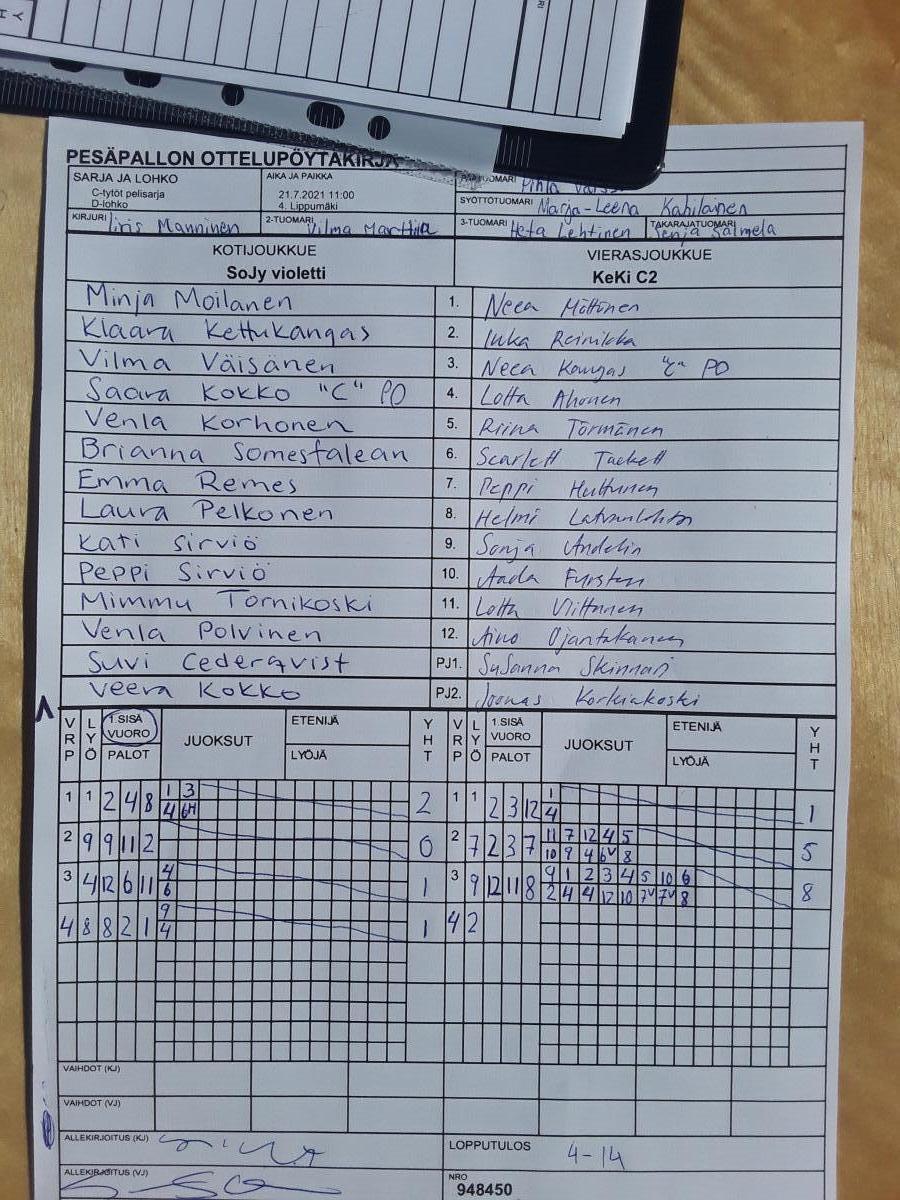 PESÄPALLON OTTELUPÖYTÄKIRJA
SARJA JA LOHKO
C-tytöt pelisarja
D-lohko
AIKA JA PAIKKA
21.7.2021 11:00
4. Lippumäki
SYÖTTÖTUOMARI Marja-Leena Kahilainen
KIRJURI Iiris Manninen
2-TUOMARI Vilma Marttila
3-TUOMARI Heta Lehtinen
TAKARAJATUOMARI Senja Salmela
KOTIJOUKKUE
SoJy violetti
VIERASJOUKKUE
KeKi C2
Minja Moilanen 1. Neea Möttönen
Klaara Kettukangas 2. Inka Reinikka
Vilma Väisänen 3. Neea Kangas "C" PO
Saara Kokko "C" PO 4. Lotta Ahonen
Venla Korhonen 5. Riina Törmänen
Brianna Somesfalean 6. Scarlett Tackett
Emma Remes 7. Peppi Huttunen
Laura Pelkonen 8. Helmi
Kati Sirviö 9. Sonja Andelin
Peppi Sirviö 10. Aada
Mimmu Tornikoski 11. Lotta Viittanen
Venla Polvinen 12. Aino Ojantakanen
Suvi Cederqvist PJ1. Susanna Skinnari
Veera Kokko PJ2. Joonas Korkiakoski
VRP LYÖ 1.SISÄ VUORO PALOT JUOKSUT ETENIJÄ LYÖJÄ YHT VRP LYÖ 1.SISÄ VUORO PALOT JUOKSUT ETENIJÄ LYÖJÄ YHT
1 3 1
1 1 2 4 8 4 6H 2 1 1 2 3 12 4 1
11 7 12 4 5
2 9 9 11 2 0 2 7 2 3 7 10 9 4 6V 8 5
4 9 1 2 3 4 5 10 6
3 4 12 6 11 6 1 3 9 12 11 8 2 4 4 12 10 7V 7V 8 8
9
4 8 8 2 1 4 1 4 2
VAIHDOT (KJ)
VAIHDOT (VJ)
ALLEKIRJOITUS (KJ)
LOPPUTULOS 4-14
ALLEKIRJOITUS (VJ)
NRO
948450